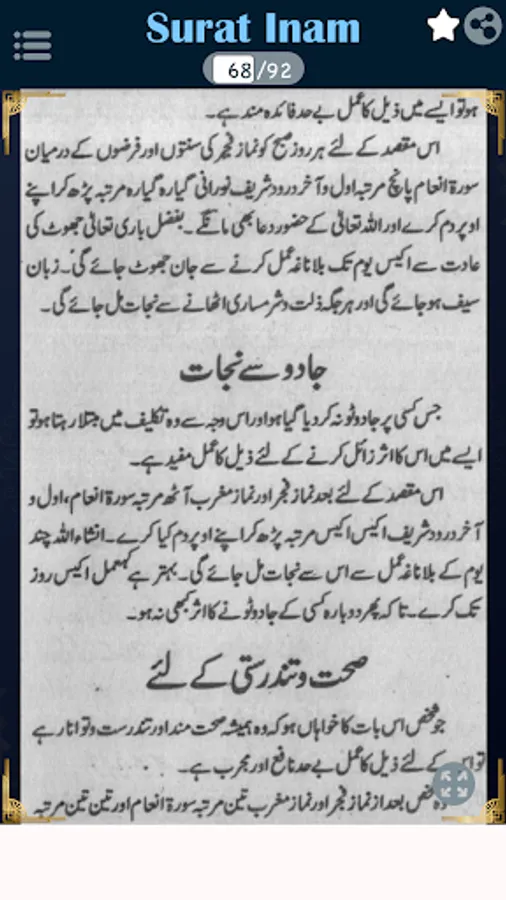 Surat Inam
68/92
ہو تو ایسے میں ذیل کا عمل بے حد فائدہ مند ہے۔
اس مقصد کے لئے ہر روز صبح کو نماز فجر کی سنتوں اور فرضوں کے درمیان
سورۃ انعام پانچ مرتبہ اول و آخر درود شریف نورانی گیارہ گیارہ مرتبہ پڑھ کر اپنے
اوپر دم کرے اور اللہ تعالیٰ کے حضور دعا بھی مانگے۔ بفضل باری تعالیٰ جھوٹ کی
عادت سے اکیس یوم تک بلا ناغہ عمل کرنے سے جان چھوٹ جائے گی۔ زبان
سیف ہو جائے گی اور ہر جگہ ذلت و شرمساری اٹھانے سے نجات مل جائے گی۔
جادو سے نجات
جس کسی پر جادو ٹونہ کر دیا گیا ہو اور اس وجہ سے وہ تکلیف میں مبتلا رہتا ہو تو
ایسے میں اس کا اثر زائل کرنے کے لئے ذیل کا عمل مفید ہے۔
اس مقصد کے لئے بعد نماز فجر اور نماز مغرب آٹھ مرتبہ سورۃ انعام، اول و
آخر درود شریف اکیس اکیس مرتبہ پڑھ کر اپنے اوپر دم کیا کرے۔ انشاء اللہ چند
یوم کے بلا ناغہ عمل سے اس سے نجات مل جائے گی۔ بہتر ہے کہ عمل اکیس روز
تک کرے۔ تاکہ پھر دوبارہ کسی کے جادو ٹونے کا اثر کبھی نہ ہو۔
صحت و تندرستی کے لئے
جو شخص اس بات کا خواہاں ہو کہ وہ ہمیشہ صحت مند اور تندرست و توانا رہے
تو اس کے لئے ذیل کا عمل بے حد نافع اور مجرب ہے۔
وہ شخص بعد از نماز فجر اور نماز مغرب تین مرتبہ سورۃ انعام اور تین تین مرتبہ